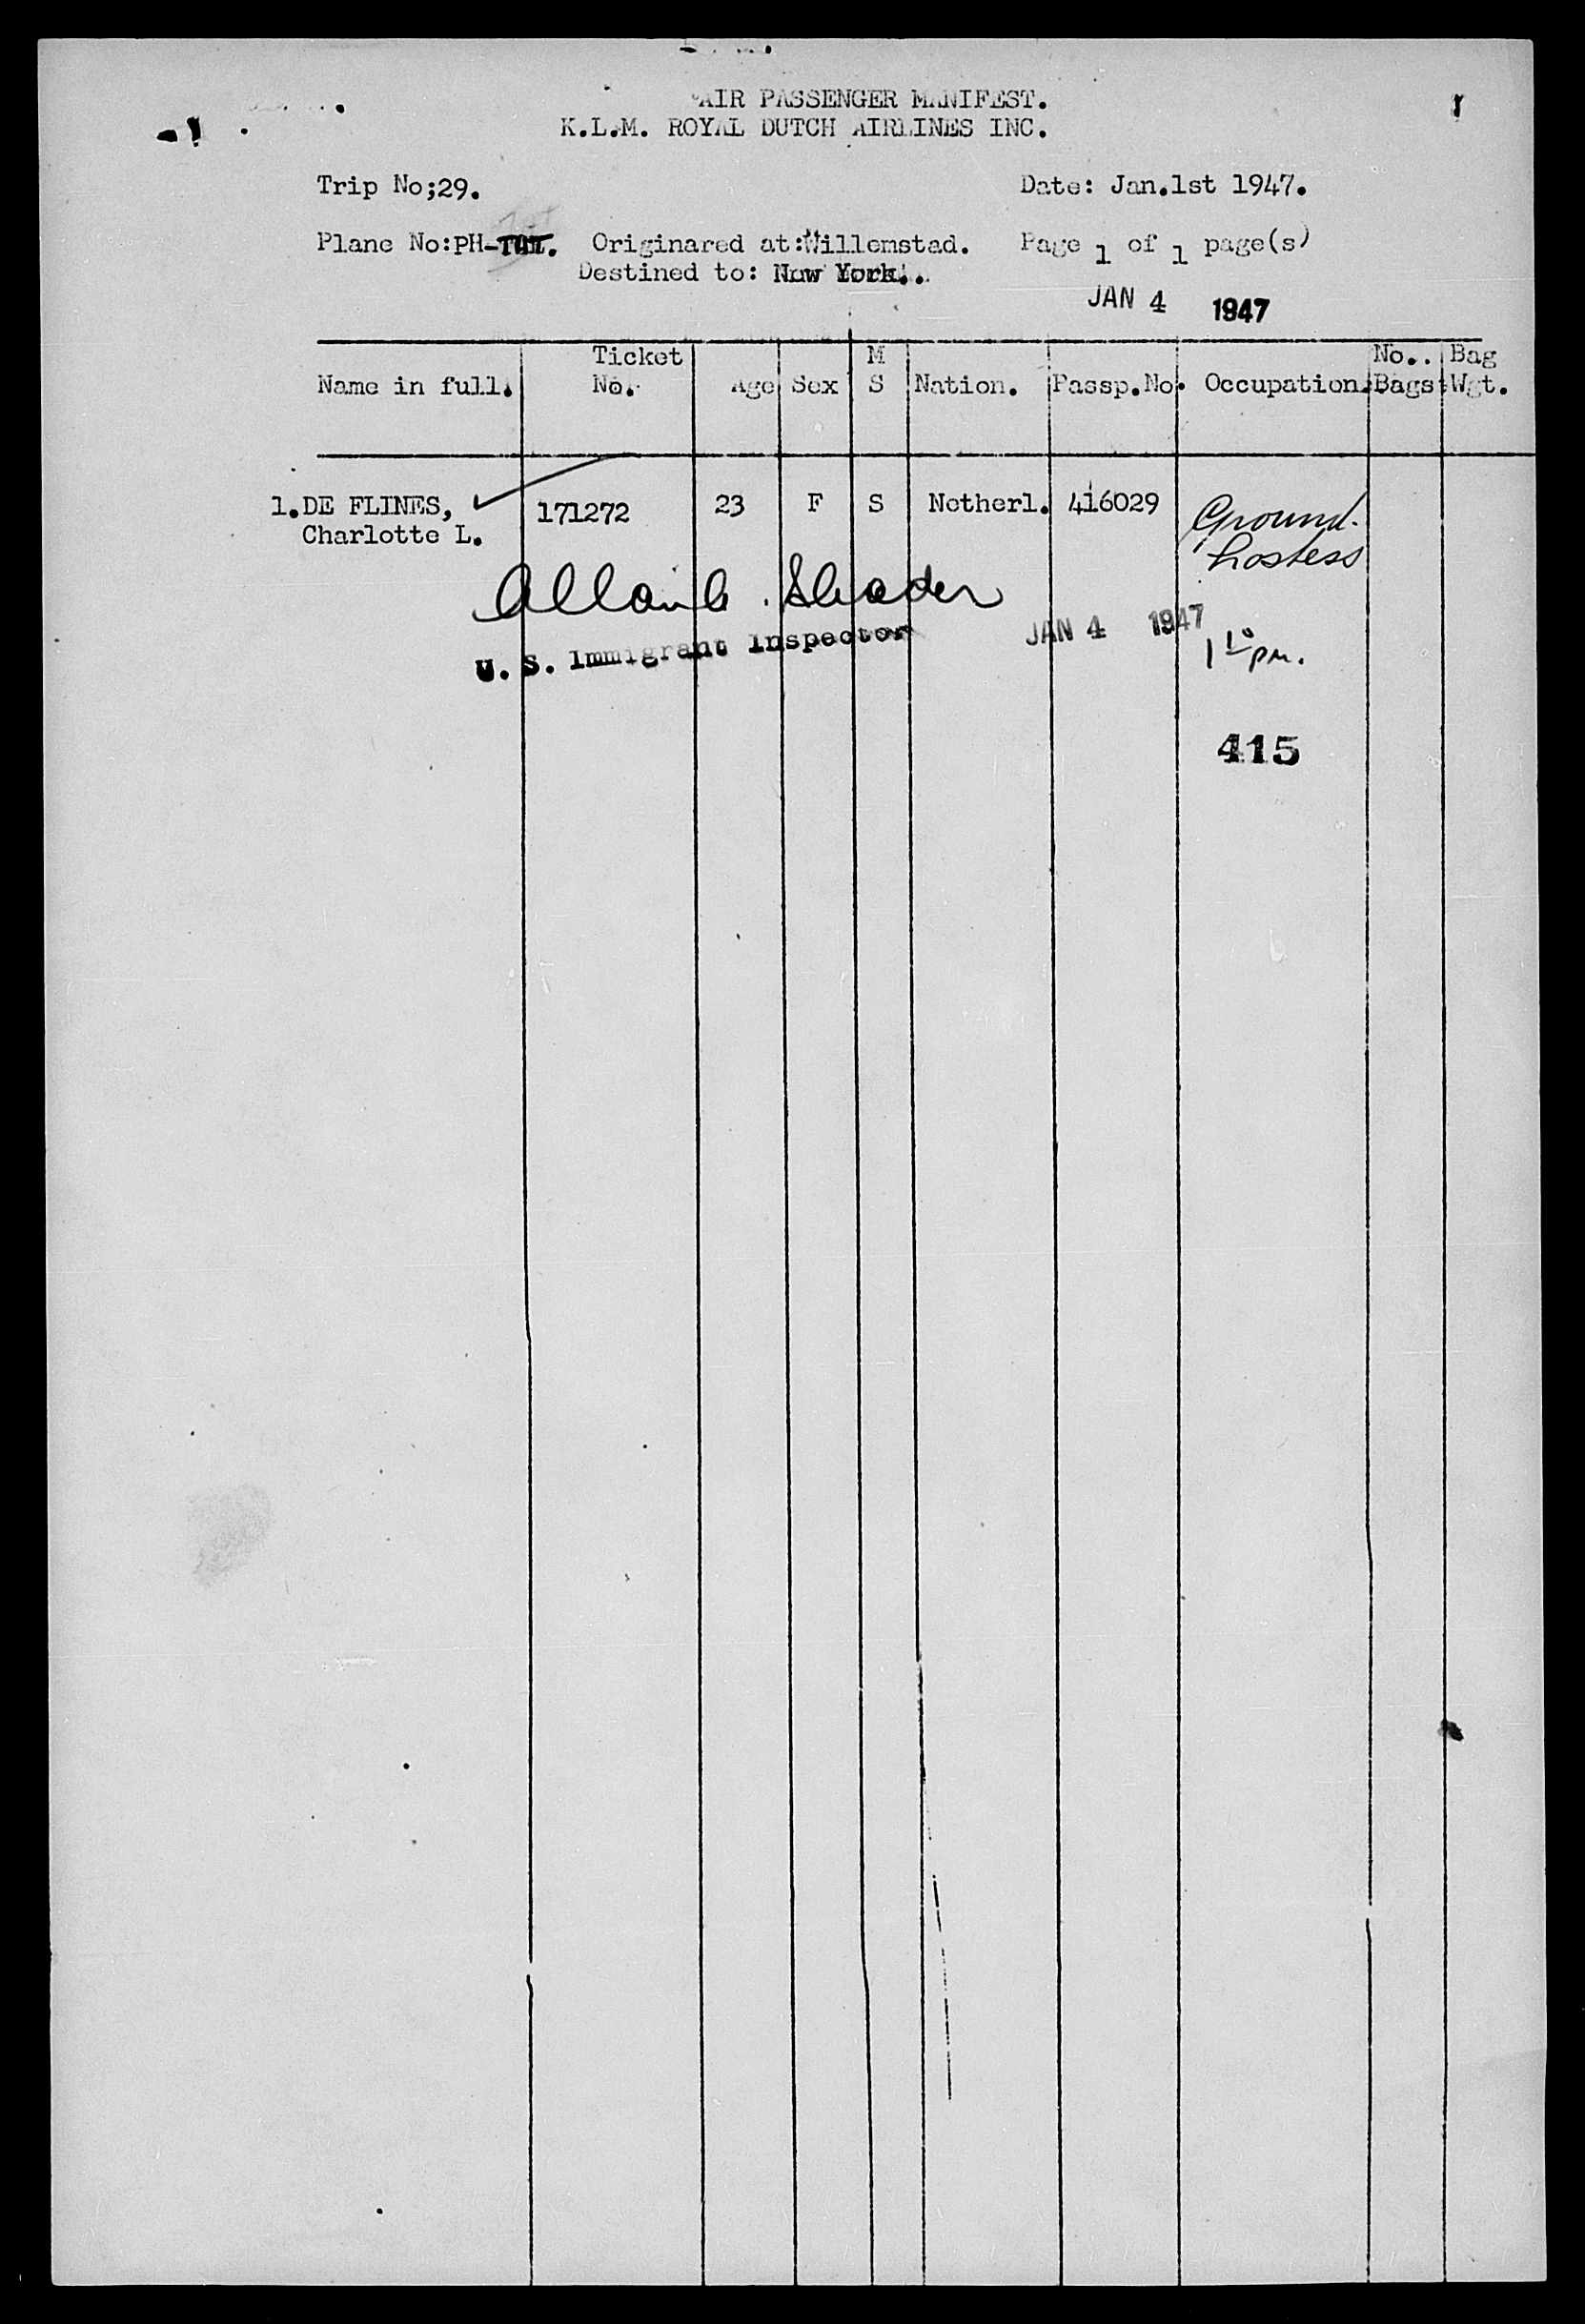 AIR PASSENGER MANIFEST.
K.L.M. ROYAL DUTCH AIRLINES INC.
Trip No;29. Date: Jan.1st 1947.
Plane No:PH- Originared at:Willemstad. Page 1 of 1 page(s)
Destined to: New York..
JAN 4 1947
Name in full. Ticket No. Age Sex M S Nation. Passp.No. Occupation. No.. Bags Bag Wgt.
1.DE FLINES, 171272 23 F S Netherl. 416029 Ground.
Charlotte L. hostess
U. S. Immigrant Inspector JAN 4 1947
pm.
415